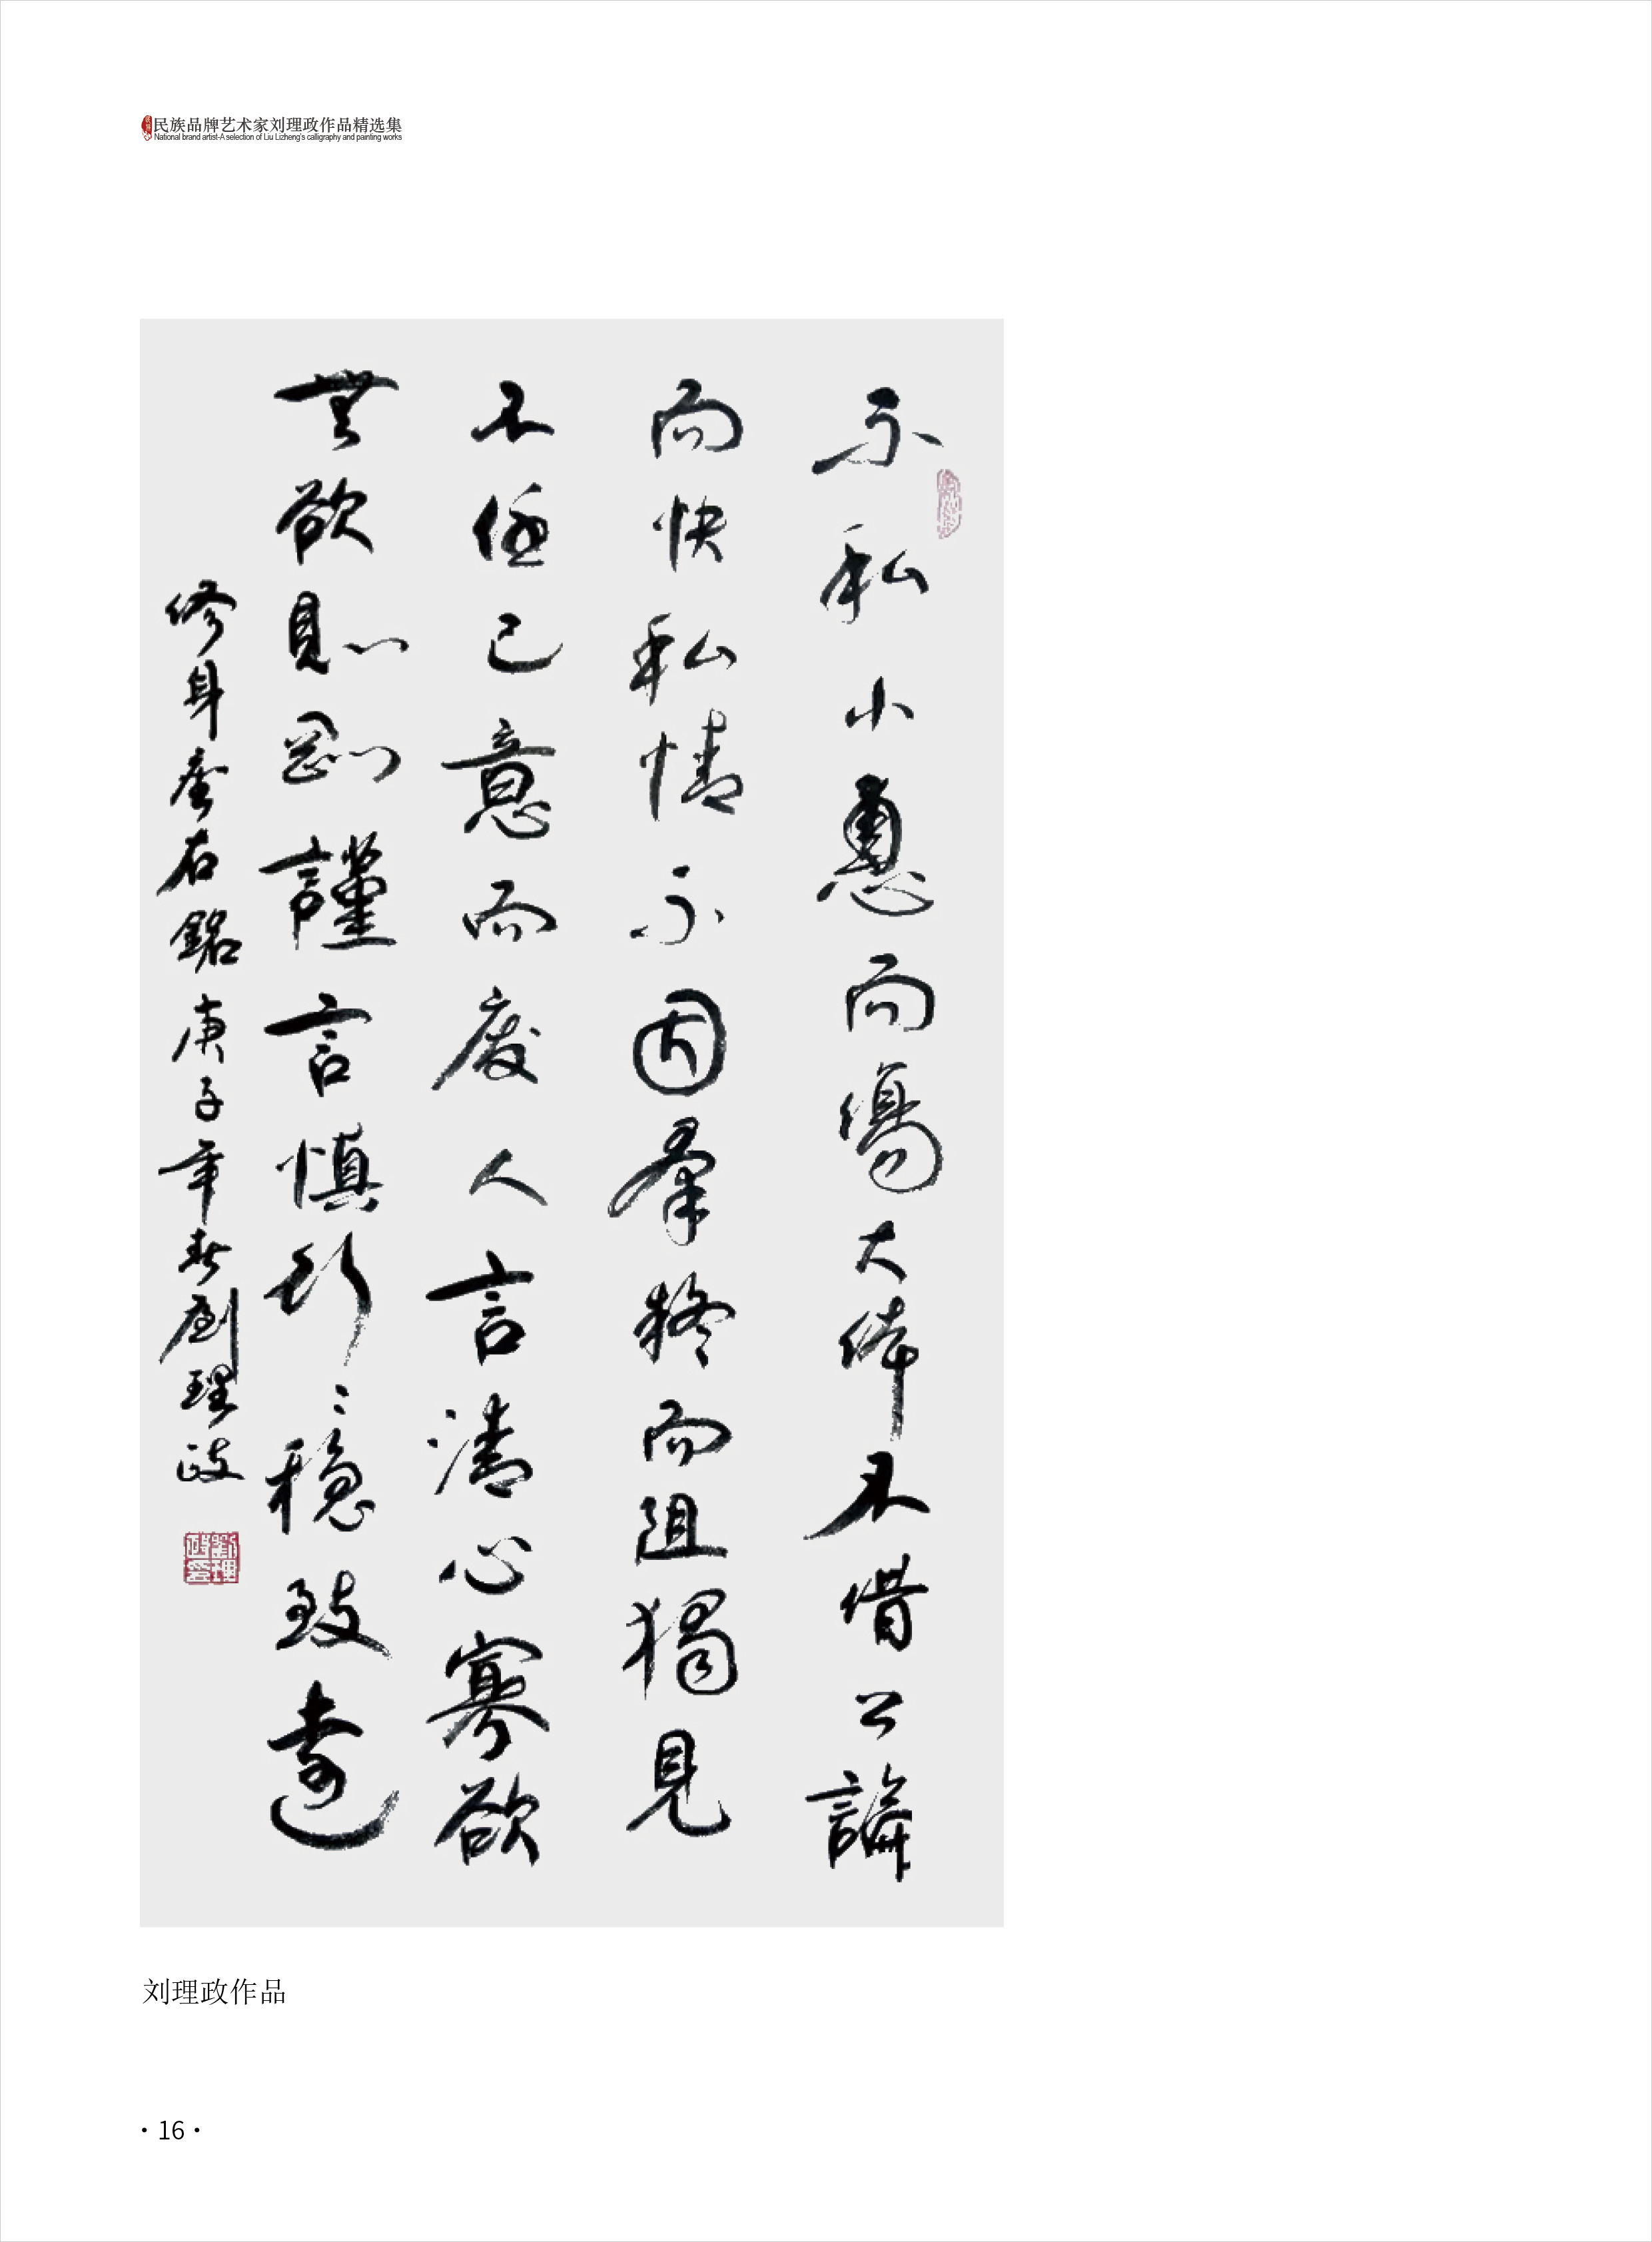 民族品牌艺术家刘理政作品精选集
National brand artist-A selection of Liu Lizheng's calligraphy and painting works
不私小惠而傷大体不借公論
而快私情不因群疑而阻獨見
不任己意而废人言清心寡欲
無欲則剛謹言慎行行穩致遠
修身座右銘庚子年春劉理政
刘理政作品
·16·